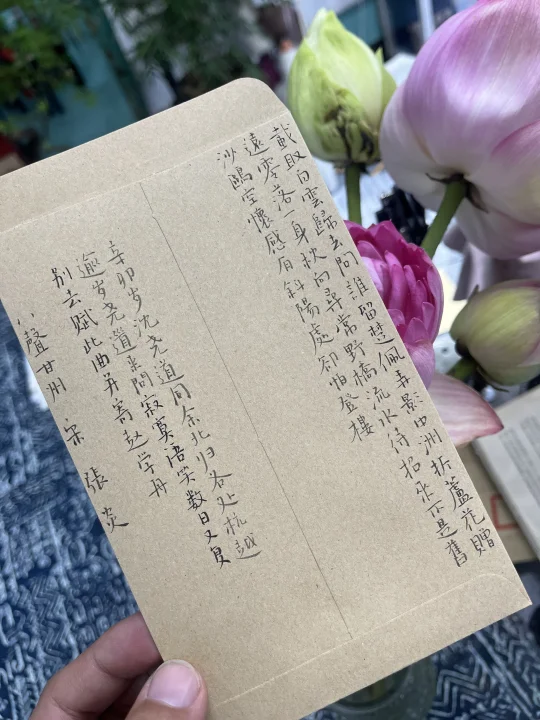 載取白雲歸去問誰留楚佩弄影中洲折蘆花贈
遠零落一身秋向尋常野橋流水待招來不是舊
沙鷗空懷感有斜陽處卻怕登樓
辛卯岁沈尧道同余北归各处杭越
逾岁尧道来問寂寞语笑数日又复
别去赋此曲并寄赵学舟
八聲甘州 宋 張炎